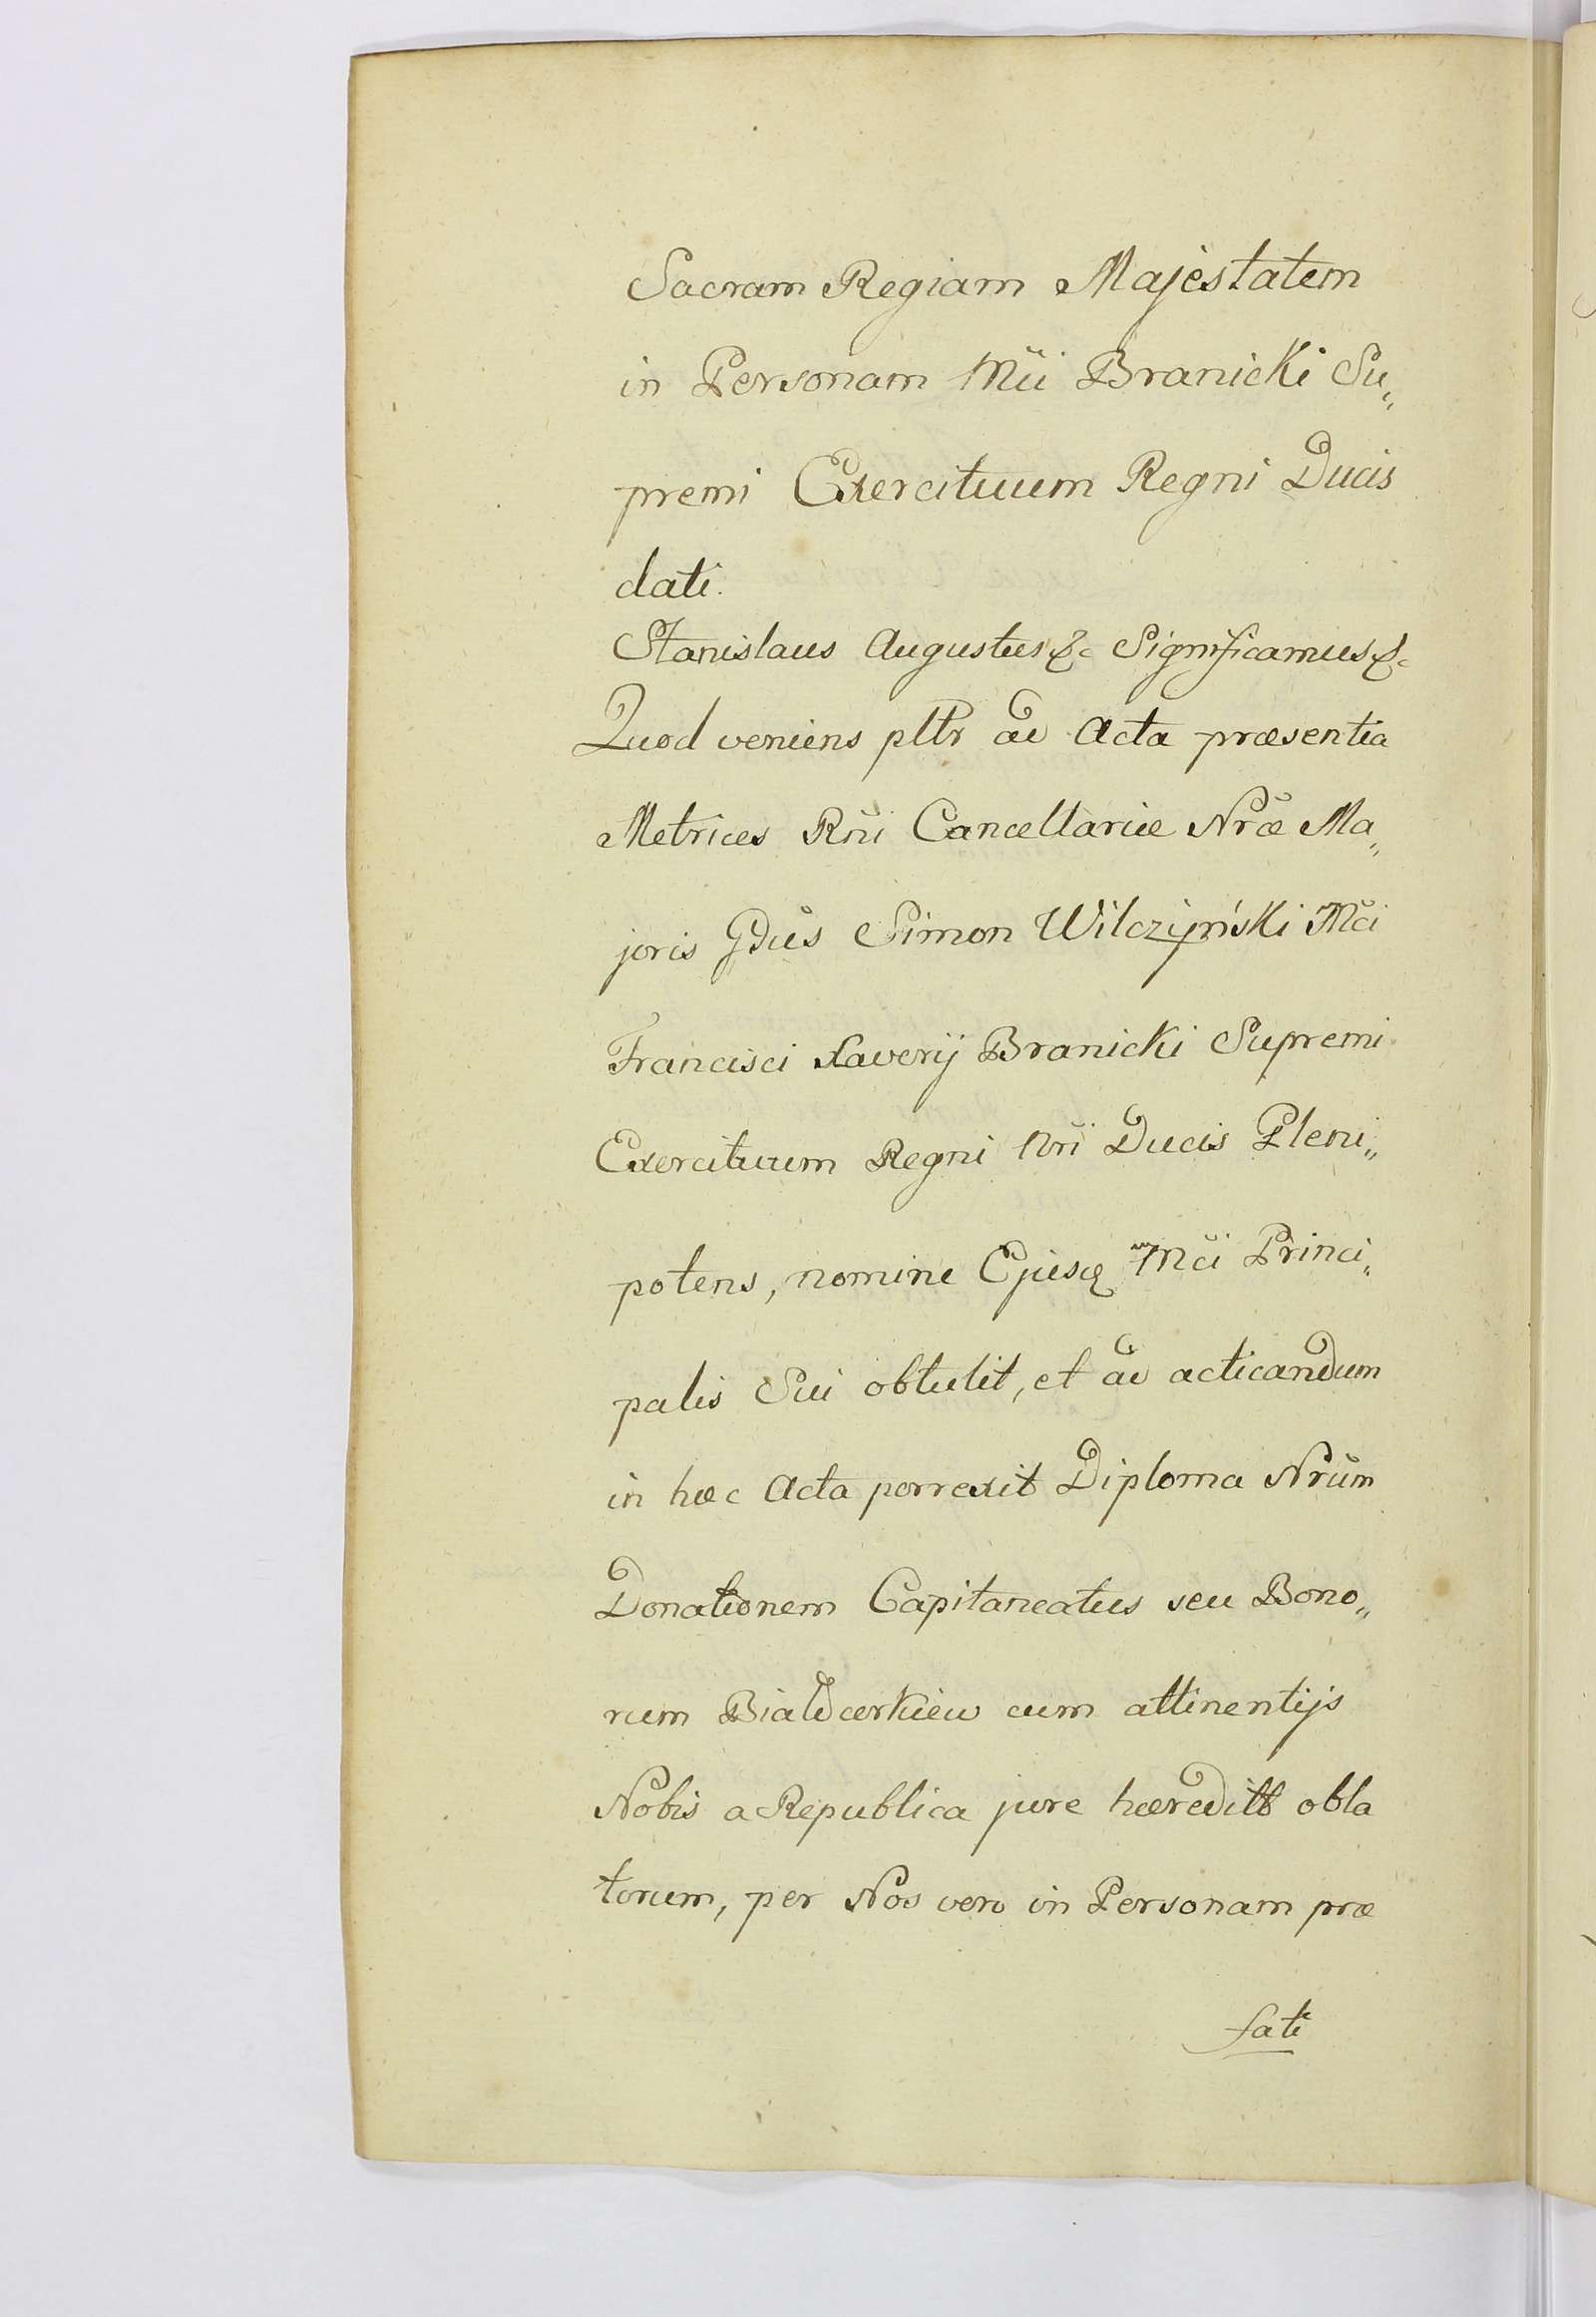 Sacram Regiam Majestatem
in Personam Mci Branicki Su„
premi Exercituum Regni Ducis
dati.
Stanislaus Augustus &c Significamus &c
Quod veniens pltr ad Acta præsentia
Metrices Rni Cancellariæ Nræ Ma„
joris Gdus Simon Wilczyński Mci
Francisci Xaverij Branicki Supremi
Exercituum Regni Nri Ducis Pleni„
potens, nomine Ejusq Mci Princi„
palis Sui obtulit, et ad acticandum
in hæc Acta porrexit Diploma Nrum
Donationem Capitaneatus seu Bono„
rum Białocerkiew cum attinentijs
Nobis a Republica jure hæredit obla
torum, per Nos vero in Personam præ
fati